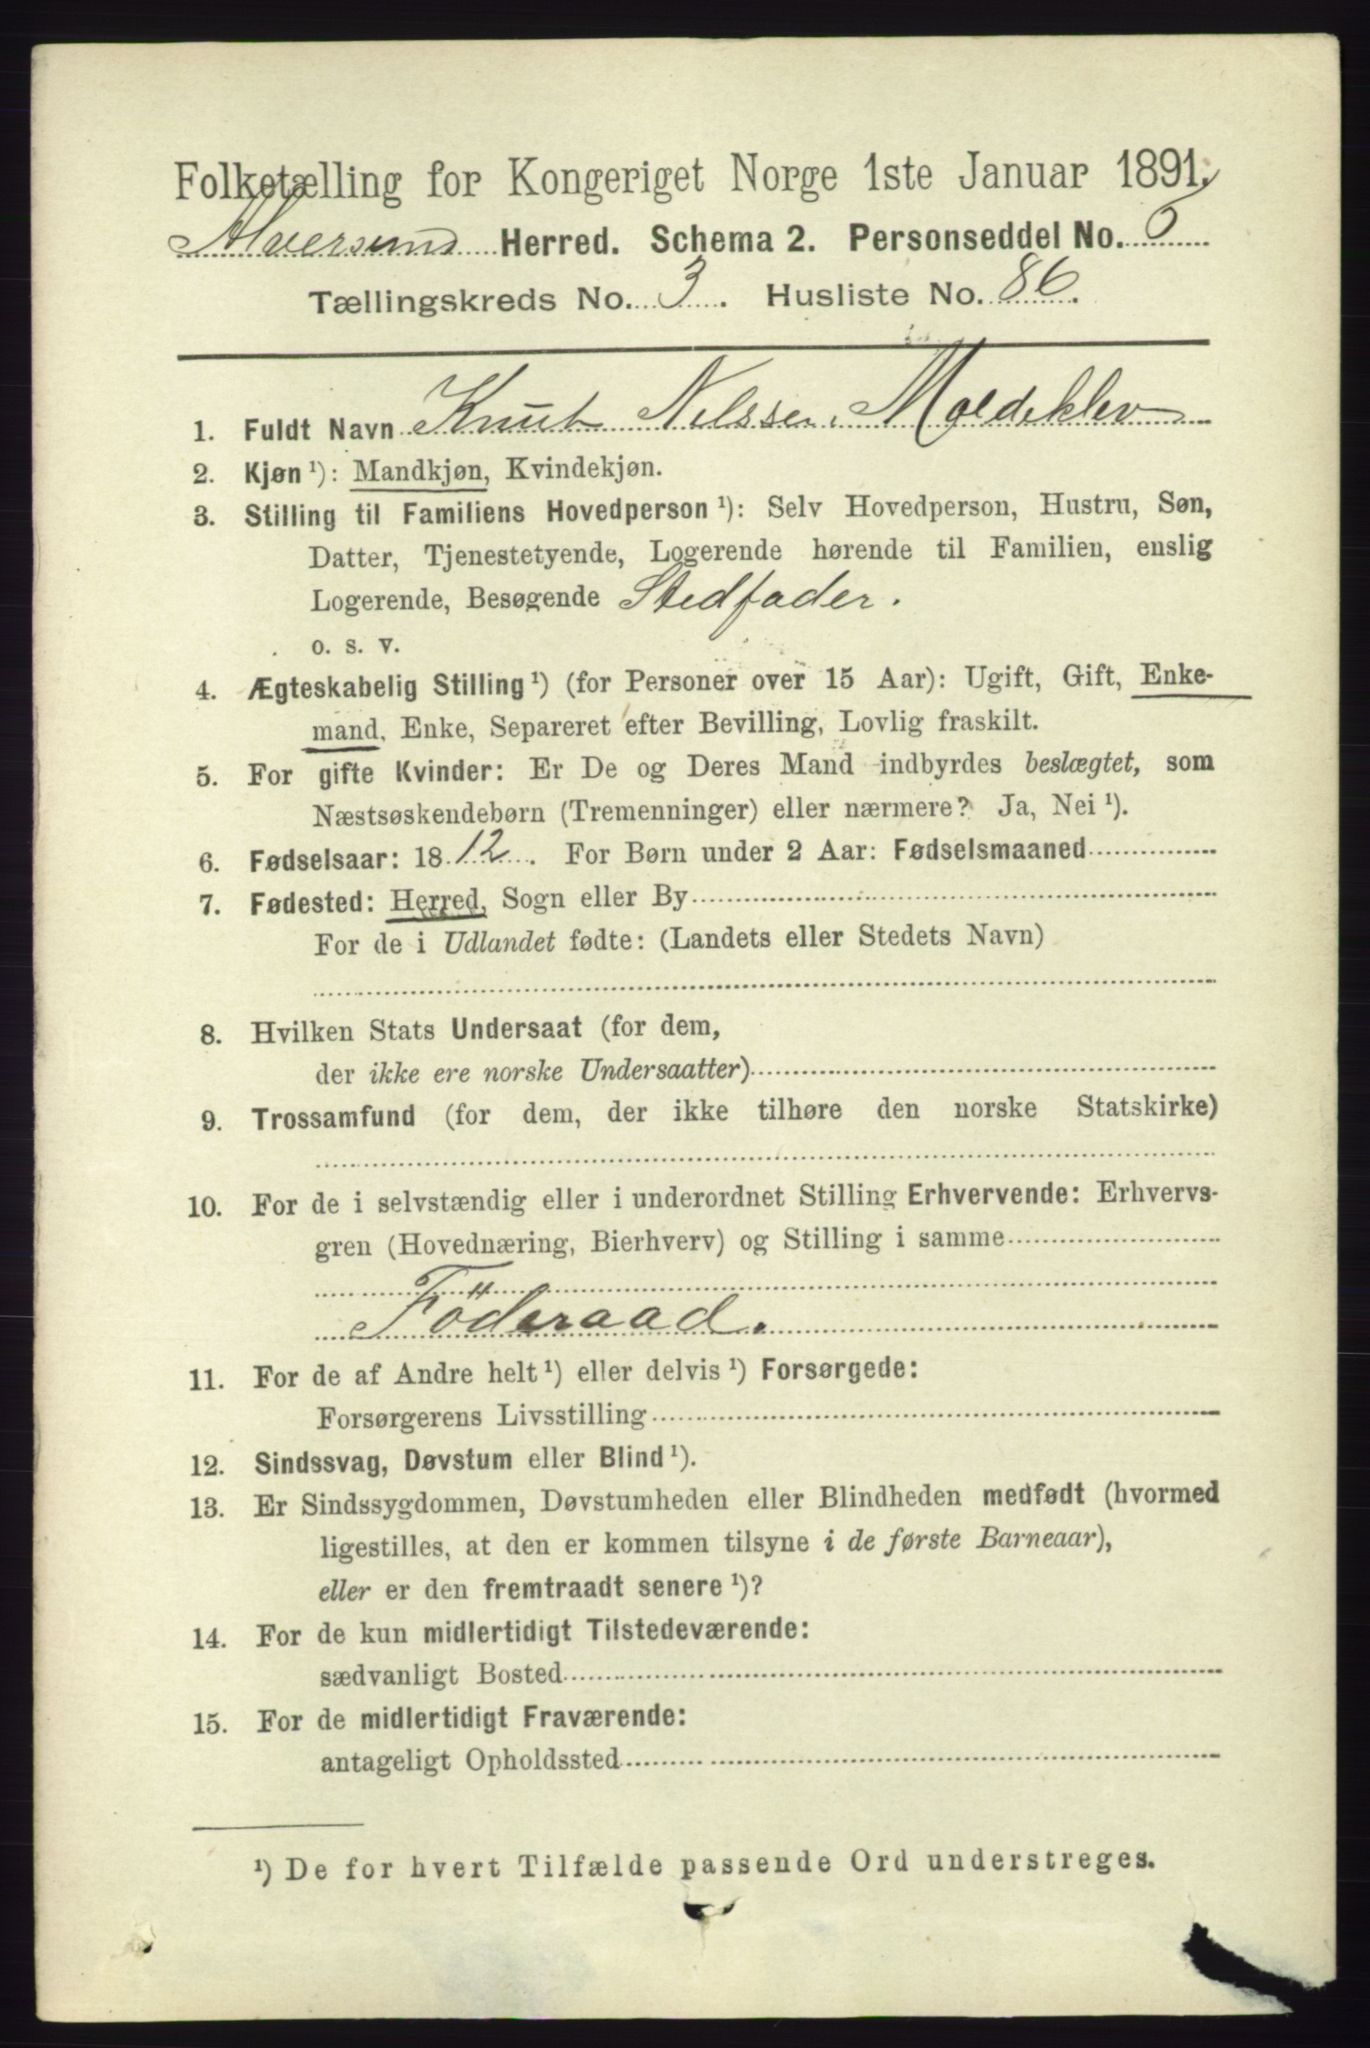 Folketælling for Kongeriget Norge 1ste Januar 1891.
Alversund Herred. Schema 2. Personseddel No. 5
Tællingskreds No. 3. Husliste No. 86.
1. Fuldt Navn Knut Nelssen Moldeklev
2. Kjøn ¹): Mandkjøn, Kvindekjøn.
3. Stilling til Familiens Hovedperson ¹): Selv Hovedperson, Hustru, Søn,
Datter, Tjenestetyende, Logerende hørende til Familien, enslig
Logerende, Besøgende Stedfader.
o. s. v.
4. Ægteskabelig Stilling ¹) (for Personer over 15 Aar): Ugift, Gift, Enke-
mand, Enke, Separeret efter Bevilling, Lovlig fraskilt.
5. For gifte Kvinder: Er De og Deres Mand indbyrdes beslægtet, som
Næstsøskendebørn (Tremenninger) eller nærmere? Ja, Nei ¹).
6. Fødselsaar: 1812. For Børn under 2 Aar: Fødselsmaaned
7. Fødested: Herred, Sogn eller By
For de i Udlandet fødte: (Landets eller Stedets Navn)
8. Hvilken Stats Undersaat (for dem,
der ikke ere norske Undersaatter)
9. Trossamfund (for dem, der ikke tilhøre den norske Statskirke)
10. For de i selvstændig eller i underordnet Stilling Erhvervende: Erhvervs-
gren (Hovednæring, Bierhverv) og Stilling i samme
Föderaad.
11. For de af Andre helt ¹) eller delvis ¹) Forsørgede:
Forsørgerens Livsstilling
12. Sindssvag, Døvstum eller Blind ¹).
13. Er Sindssygdommen, Døvstumheden eller Blindheden medfødt (hvormed
ligestilles, at den er kommen tilsyne i de første Barneaar),
eller er den fremtraadt senere ¹)?
14. For de kun midlertidigt Tilstedeværende:
sædvanligt Bosted
15. For de midlertidigt Fraværende:
antageligt Opholdssted
¹) De for hvert Tilfælde passende Ord understreges.